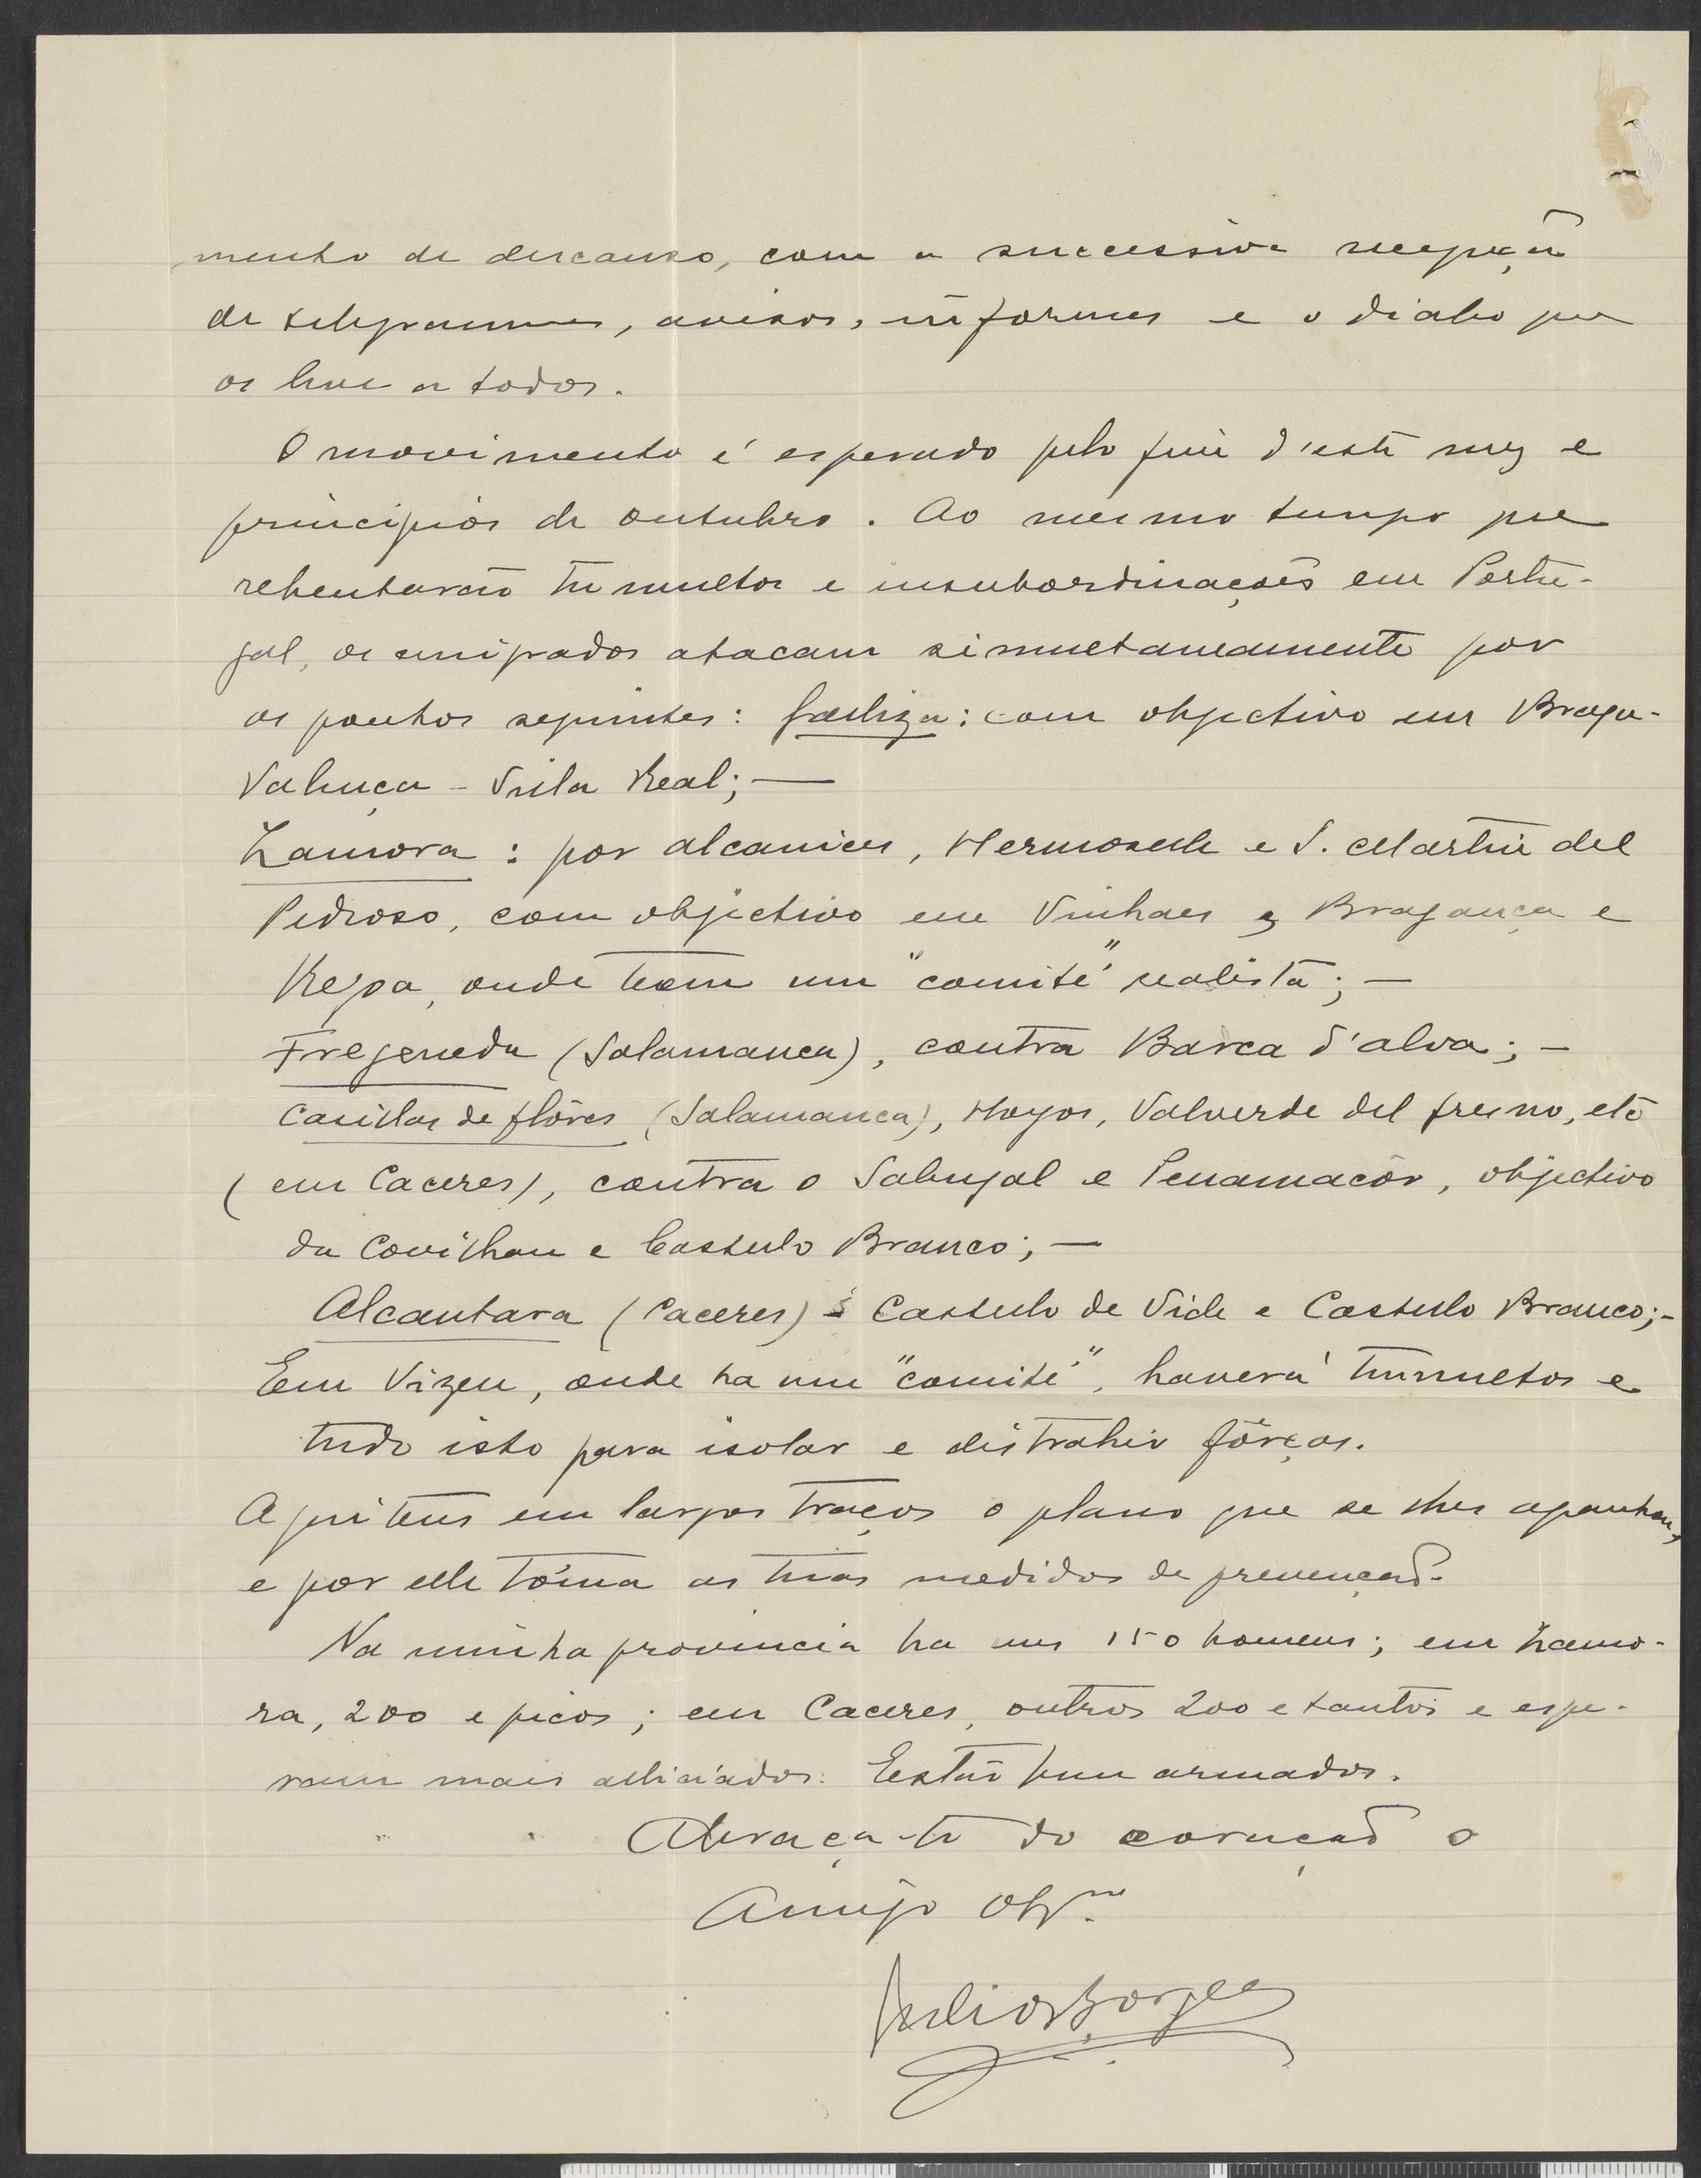 mento de descanso, com a successiva recepção
de telegrammas, avisos, informes e o diabo que
os leve a todos.
O movimento é esperado pelo fim d'este mez e
principios de outubro. Ao mesmo tempo que
rebentarão tumultos e insubordinações em Portu-
gal, os emigrados atacam simultaneamente por
os pontos seguintes: Galliza: com objectivo em Braga-
Valença - Vila Real; —
Zamora: por Alcanices, Hermoselle e S. Martin del
Pedroso, com objectivo em Vinhaes, Bragança e
Regoa, onde teem um "comité" realista; —
Fregeneda (Salamanca), contra Barca d'alva; —
Casillas de flôres (Salamanca), Hoyos, Valverde del fresno, etc
(em Caceres), contra o Sabugal e Penamacôr, objectivo
da Covilhan e Castello Branco; —
Alcantara (Caceres) Castello de Vide e Castello Branco; -
Em Vizeu, onde ha um "comité", haverá tumultos e
tudo isto para isolar e distrahir fôrças.
Aqui tens em largos traços o plano que se lhes apanhou,
e por elle tóma as tuas medidas de prevenção.
Na minha provincia ha uns 150 homens; em Zamo-
ra, 200 e picos; em Caceres, outros 200 e tantos e espe-
ram mais alliciados. Estão bem armados.
Abraça-te do coração o
Amigo Obg.mo
Julio Borges